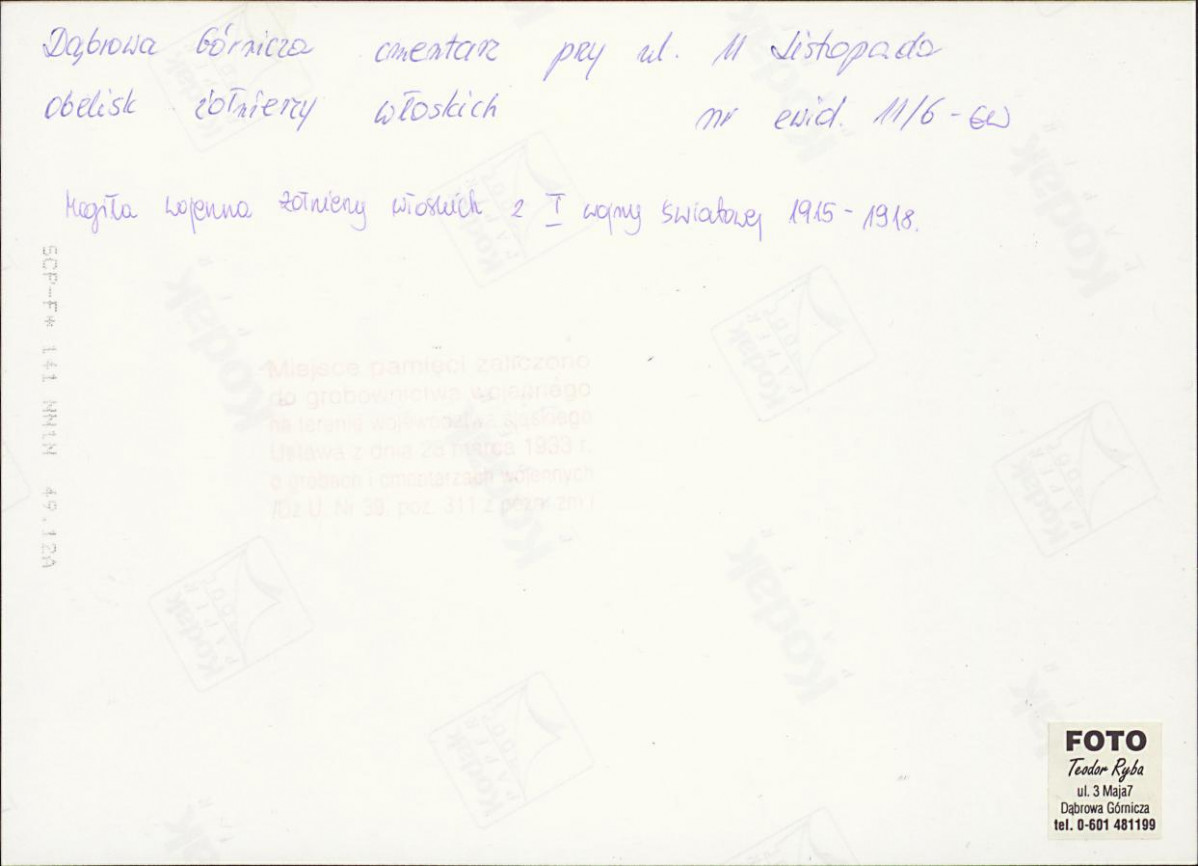 Dąbrowa Górnicza cmentarz przy ul. 11 Listopada
obelisk żołnierzy włoskich nr ewid. 11/6 - GW
Mogiła wojenna żołnierzy włoskich z I wojny światowej 1915 - 1918.
SCP-F* 141 NN1N 49.12A
Miejsce pamięci zaliczono
do grobownictwa wojennego
na terenie województwa śląskiego
Ustawa z dnia 28 marca 1933 r.
o grobach i cmentarzach wojennych
Dz.U. Nr 39, poz. 311 z późn. zm.
FOTO
Teodor Ryba
ul. 3 Maja7
Dąbrowa Górnicza
tel. 0-601 481199